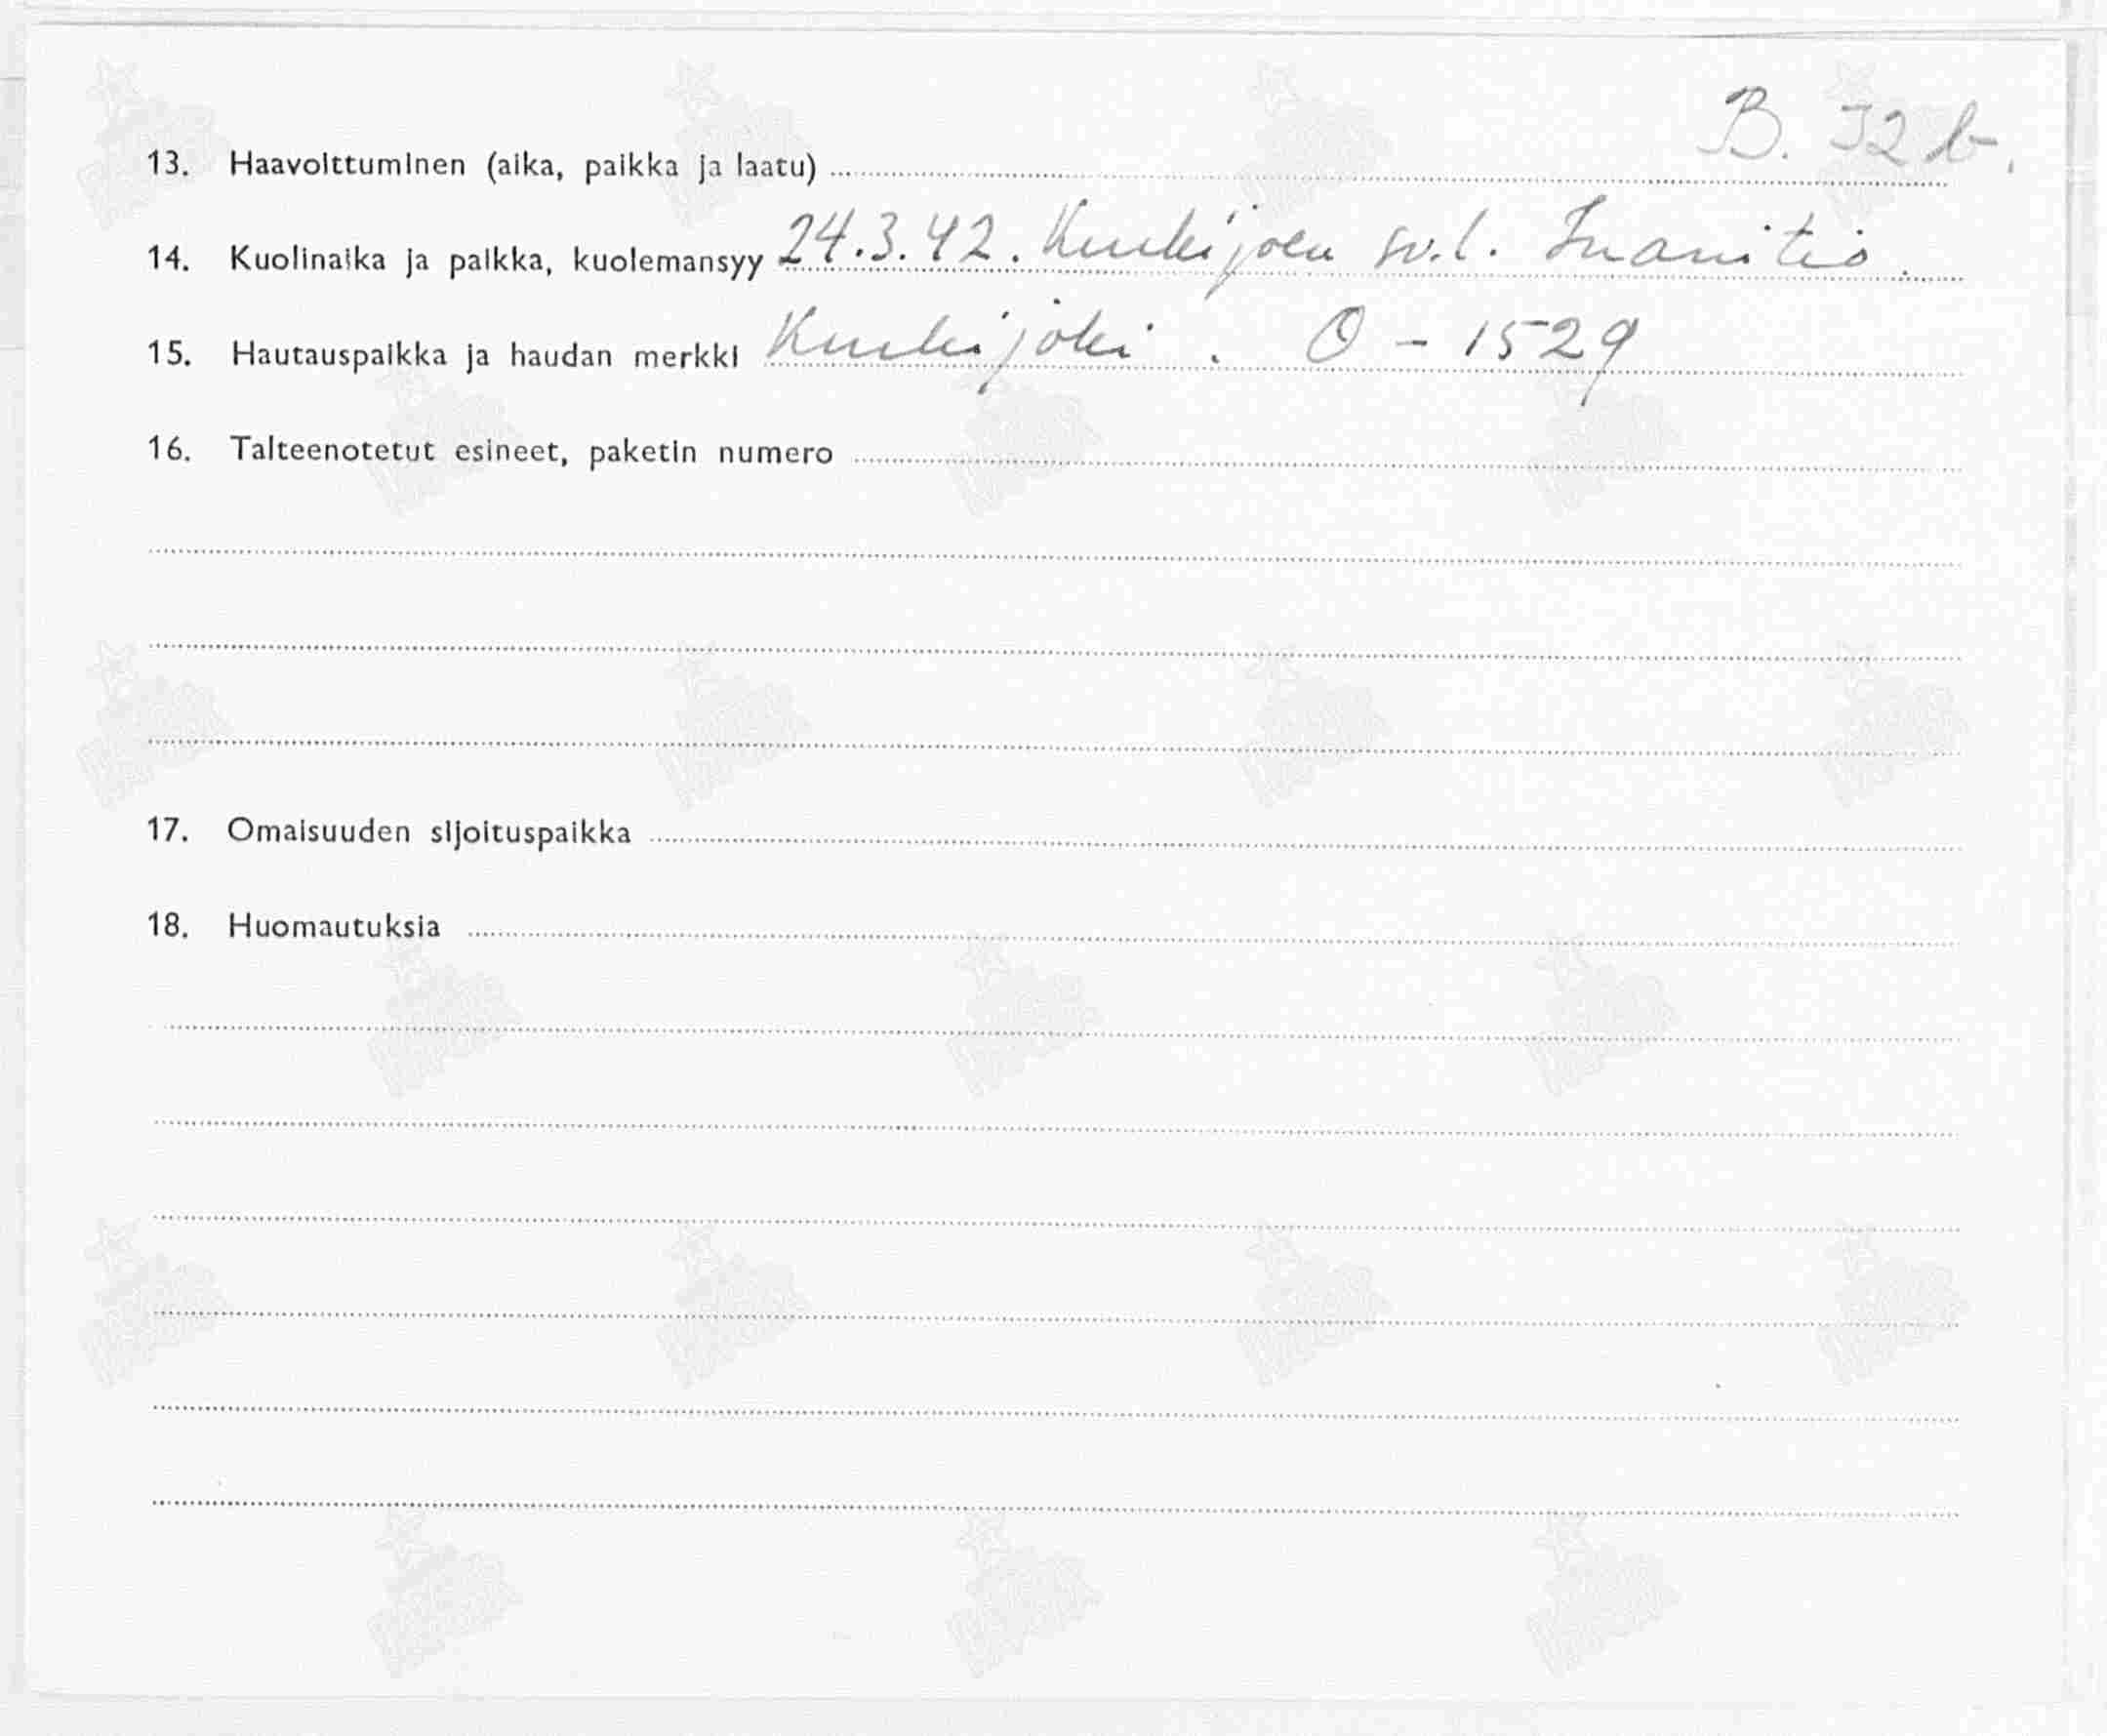 B. 32 b.
13. Haavoittuminen (aika, paikka ja laatu)
14. Kuolinaika ja paikka, kuolemansyy 24.3.42. Kurkijoen sv.l. Inanitio.
15. Hautauspaikka ja haudan merkki Kurkijoki. O - 1529
16. Talteenotetut esineet, paketin numero
17. Omaisuuden sijoituspaikka
18. Huomautuksia